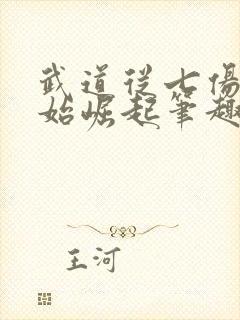 武道從七傷
始崛起筆趣
王河